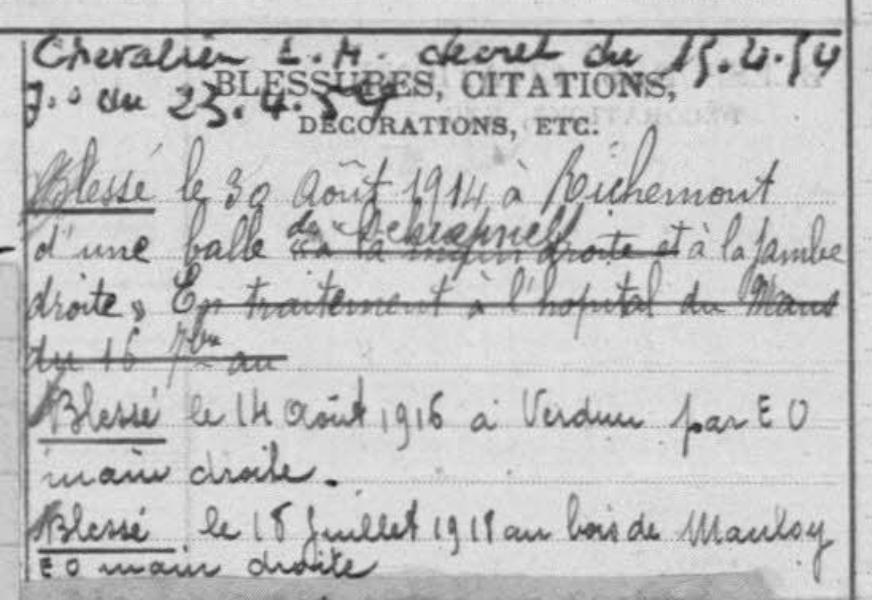 Chevalier L. H. décret du 15.4.54
J.o du 23.4.54
BLESSURES, CITATIONS,
DÉCORATIONS, ETC.
Blessé le 30 Août 1914 à Richemont
de Schrapnell
d'une balle "à la main droite et à la jambe
droite" En traitement à l'hopital du Mans
du 16 7bre au
Blessé le 14 Août 1916 à Verdun par E O
main droite.
Blessé le 18 Juillet 1918 au bois de Mauloy
E O main droite